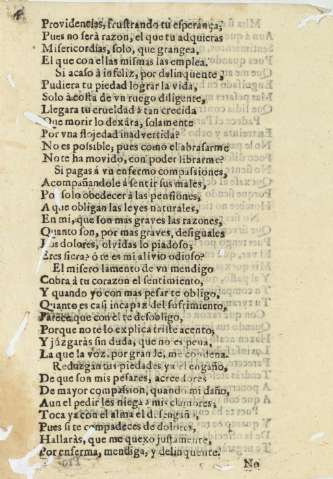 Providencias, frustrando tu esperança,
Pues no ferà razon, el que tu adquieras
Misericordias, solo, que grangea,
El que con ellas mismas las emplea.
Si acaso à infeliz, por delinquente,
Pudiera tu piedad lograr la vida,
Solo à costa de vn ruego diligente,
Llegara tu crueldad à tan crecida
Que morir lo dexàra, solamente
Por vna flojedad inadvertida?
No es possible; pues como el abrasarme
No te ha movido, con poder librarme?
Si pagas à vn enfermo compassiones,
Acompañandole à sentir sus males,
Por solo obedecer à las pensiones,
A que obligan las leyes naturales,
En mi, que son mas graves las razones,
Quanto son, por mas graves, desiguales
Los dolores, olvidas lo piadoso;
Eres fiera? ò te es mi alivio odioso?
El misero lamento de vn mendigo
Cobra à tu corazon el sentimiento,
Y quando yo con mas pesar te obligo,
Quanto es casi incapaz del sufrimiento,
Parece que con èl te desobligo,
Porque no te lo explica triste acento,
Y juzgaràs sin duda, que no es pena,
La que la voz, por grande, me condena.
Reduzgan tus piedades ya el engaño,
De que son mis pesares, acreedores
De mayor compassion, quando mi daño,
Aun el pedir les niega à mis clamores;
Toca ya con el alma el desengaño,
Pues si te compadeces de dolores,
Hallaràs, que me quexo justamente,
Por enferma, mendiga, y delinquente.
No